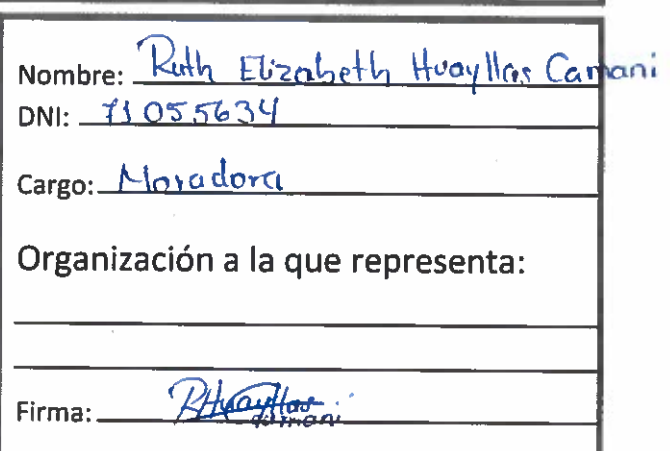 Nombre: Ruth Elizabeth Huayllas Camani
DNI: 71055634
Cargo: Moradora
Organización a la que representa:
Firma: RHuayllas
Camani